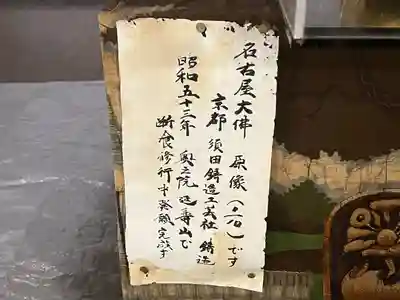 名古屋大佛 原像(1/20)です
京都 須田鋳造工芸社 鋳造
昭和五十三年 奥之院 延寿山で
断食修行中発願完成す